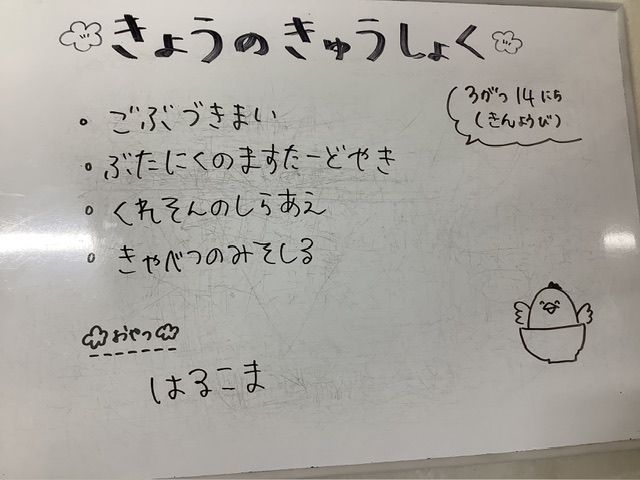 きょうのきゅうしょく
3がつ14にち
(きんようび)
ごぶづきまい
ぶたにくのますたーどやき
くれそんのしらあえ
きゃべつのみそしる
おやつ
はるこま